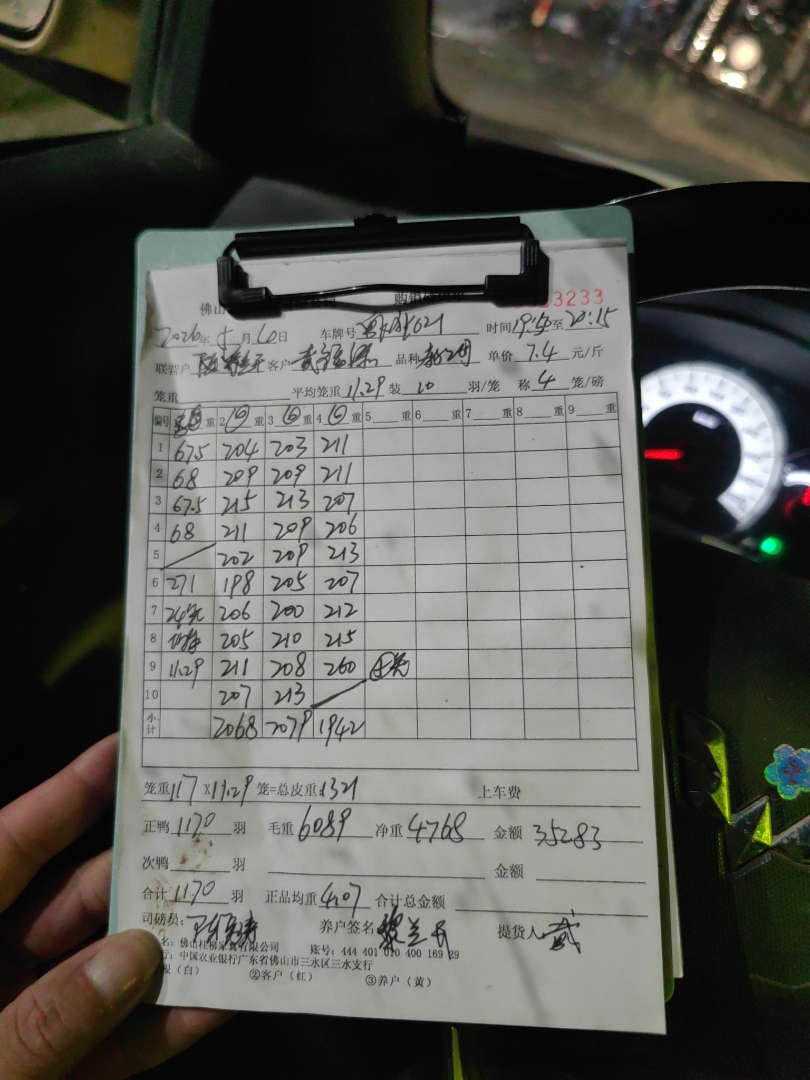 佛山 3233
2026年5月10日 车牌号 621 时间19:50至20:15
联营户 客户 品种 单价 7.4 元/斤
笼重 平均笼重 11.29 装 10 羽/笼 称 4 笼/磅
编号 重 2 ⑥ 重 3 ⑥ 重 4 ⑥ 重 5 重 6 重 7 重 8 重 9 重
1 67.5 204 203 211
2 68 209 209 211
3 67.5 215 213 207
4 68 211 209 206
5 202 209 213
6 271 198 205 207
7 24笼 206 200 212
8 205 210 215
9 11.29 211 208 260
10 207 213
小计 2068 2079 1942
笼重 117 × 11.29 笼=总皮重 1321 上车费
正鸭 1170 羽 毛重 6089 净重 4768 金额 35283
次鸭 羽 金额
合计 1170 羽 正品均重 4.07 合计总金额
司磅员: 养户签名 提货人
名: 佛山 有限公司 账号: 444 401 010 400 169 29
行: 中国农业银行广东省佛山市三水区三水支行
根(白) ②客户(红) ③养户(黄)